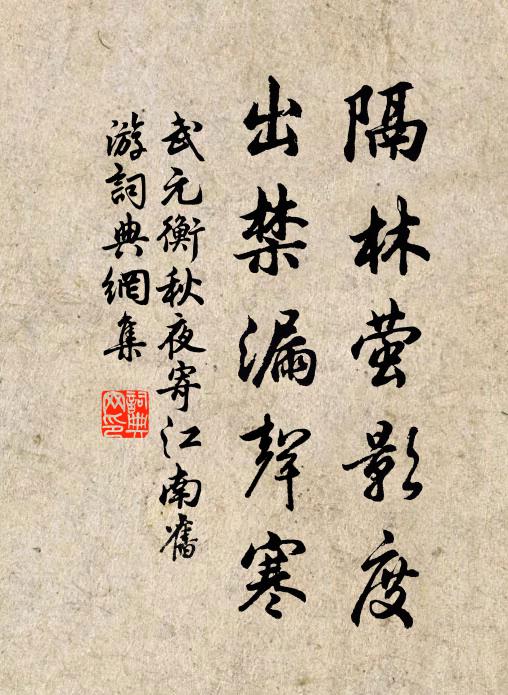 隔林萤影度
出禁漏聲寒
武元衡秋夜寄江南舊
游詞典網集
詞典网印